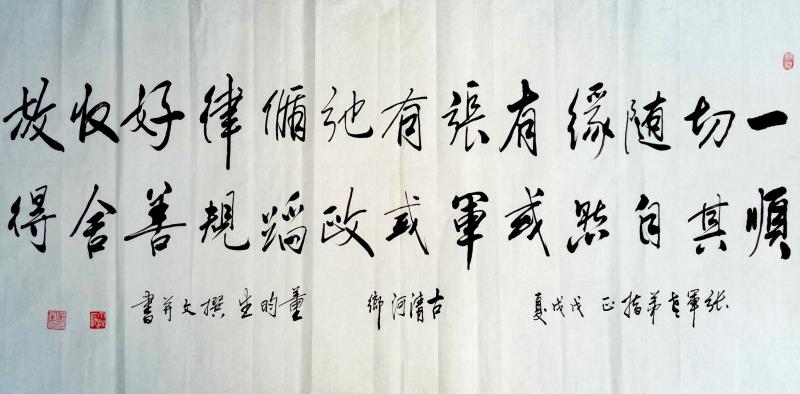 一切随緣有張有弛循律好收放
順其自然或軍或政蹈規善舍得
張軍老弟指正 戊戌夏 古清河鄉 董昀生撰文并書